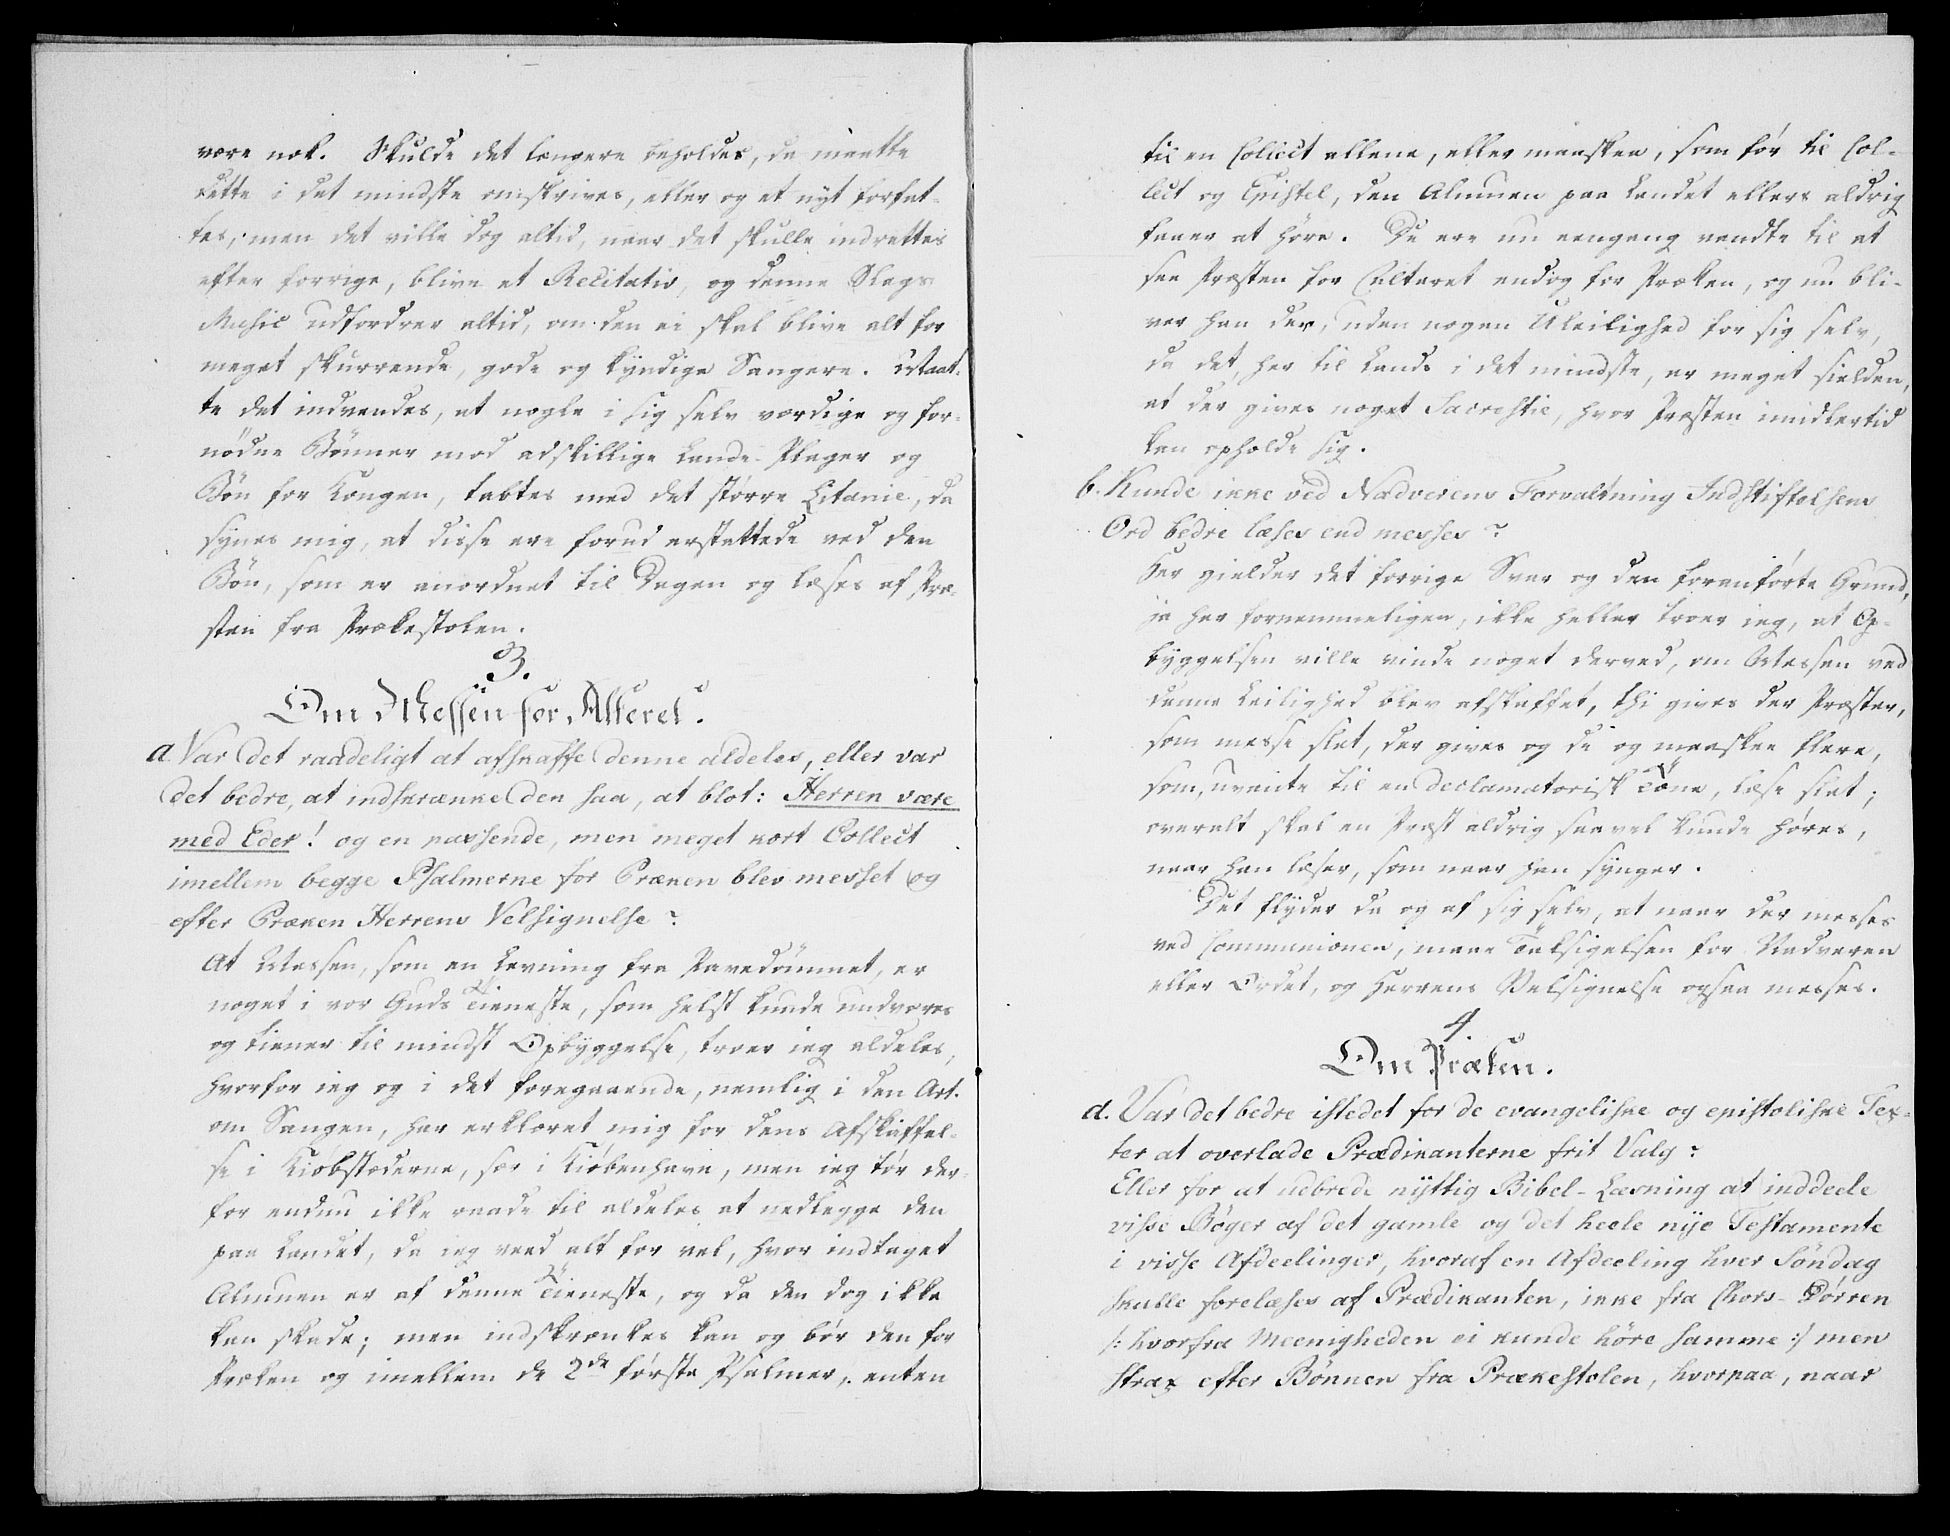 være nok. Skulde det længere beholdes, da maatte
dette i det mindste omskrives, eller og et nyt forfat-
tes; men det ville dog altid, naar det skulle indrettes
efter forrige, blive et Recitativ, og denne Slags
Music udfordrer altid, om den ei skal blive alt for
meget skurrende, gode og kyndige Sangere. Maat-
te det indvendes, at nogle i sig selv værdige og for-
nödne Bönner mod adskillige Lande-Plager og
Bön for Kongen, tabtes med det större Litanie, da
synes mig, at disse ere forud erstattede ved den
Bön, som er anordnet til Dagen og læses af Præ-
sten fra Prækestolen.
3.
Om Messen for Alteret.
a. Var det raadeligt at afskaffe denne aldeles, eller var
det bedre, at indskrænke den saa, at blot: Herren være
med Eder! og en passende, men meget kort Collect
imellem begge Psalmerne for Præken blev messet og
efter Præken Herrens Velsignelse?
At Messen, som en Levning fra Pavedömmet, er
noget i vor Guds Tieneste, som helst kunde undværes
og tiener til mindst Opbyggelse, troer ieg aldeles,
hvorfor ieg og i det foregaaende, nemlig i den Art.
om Sangen, har erklæret mig for dens Afskaffel-
se i Kiöbstæderne, sær i Kiöbenhavn, men ieg tör der-
for endnu ikke raade til aldeles at nedlegge den
paa Landet, da ieg veed alt for vel, hvor indtaget
Almuen er af denne Tieneste, og da den dog ikke
kan skade; men indskrænkes kan og bör den for
Præken og imellem de 2de förste Psalmer, enten
til en Collect allene, eller maaskee, som för til Col-
lect og Epistel, den Almuen paa Landet ellers aldrig
faaer at höre. De ere nu eengang vandte til at
see Præsten for Alteret endog for Præken, og nu bli-
ver han der, uden nogen Uleilighed for sig selv,
da det, her til Lands i det mindste, er meget sielden,
at der gives noget Sacrestie, hvor Præsten imidlertid
kan opholde sig.
b. Kunde ikke ved Nadverens Forvaltning Indstiftelsens
Ord bedre læses end messes?
Her gielder det forrige Svar og den foranförte Grund,
ja her fornemmeligen, ikke heller troer ieg, at Op-
byggelsen ville vinde noget derved, om Messen ved
denne Leilighed blev afskaffet, thi gives der Præster,
som messe slet, der gives og de og maaskee flere,
som, uvante til en declamatorisk Tone, læse slet;
overalt skal en Præst aldrig saavel kunde höres,
naar han læser, som naar han synger.
Det flyder da og af sig selv, at naar der messes
ved Communionen, maae Tilsigelsen for Nadveren
eller Ordet, og Herrens Velsignelse ogsaa messes.
4
Om Præken.
a. Var det bedre istedet for de evangeliske og epistoliske Tex-
ter at overlade Prædikanterne frit Valg?
Eller for at udbrede nyttig Bibel-Læsning at inddeele
visse Böger af det gamle og det heele nye Testamente
i visse Afdeelinger, hvoraf en Afdeeling hver Söndag
skulle forelæses af Prædikanten, ikke fra Chors-Dörren
/: hvorfra Meenigheden ei kunde höre samme :/ men
strax efter Bönnen fra Prækestolen, hvorpaa, naar